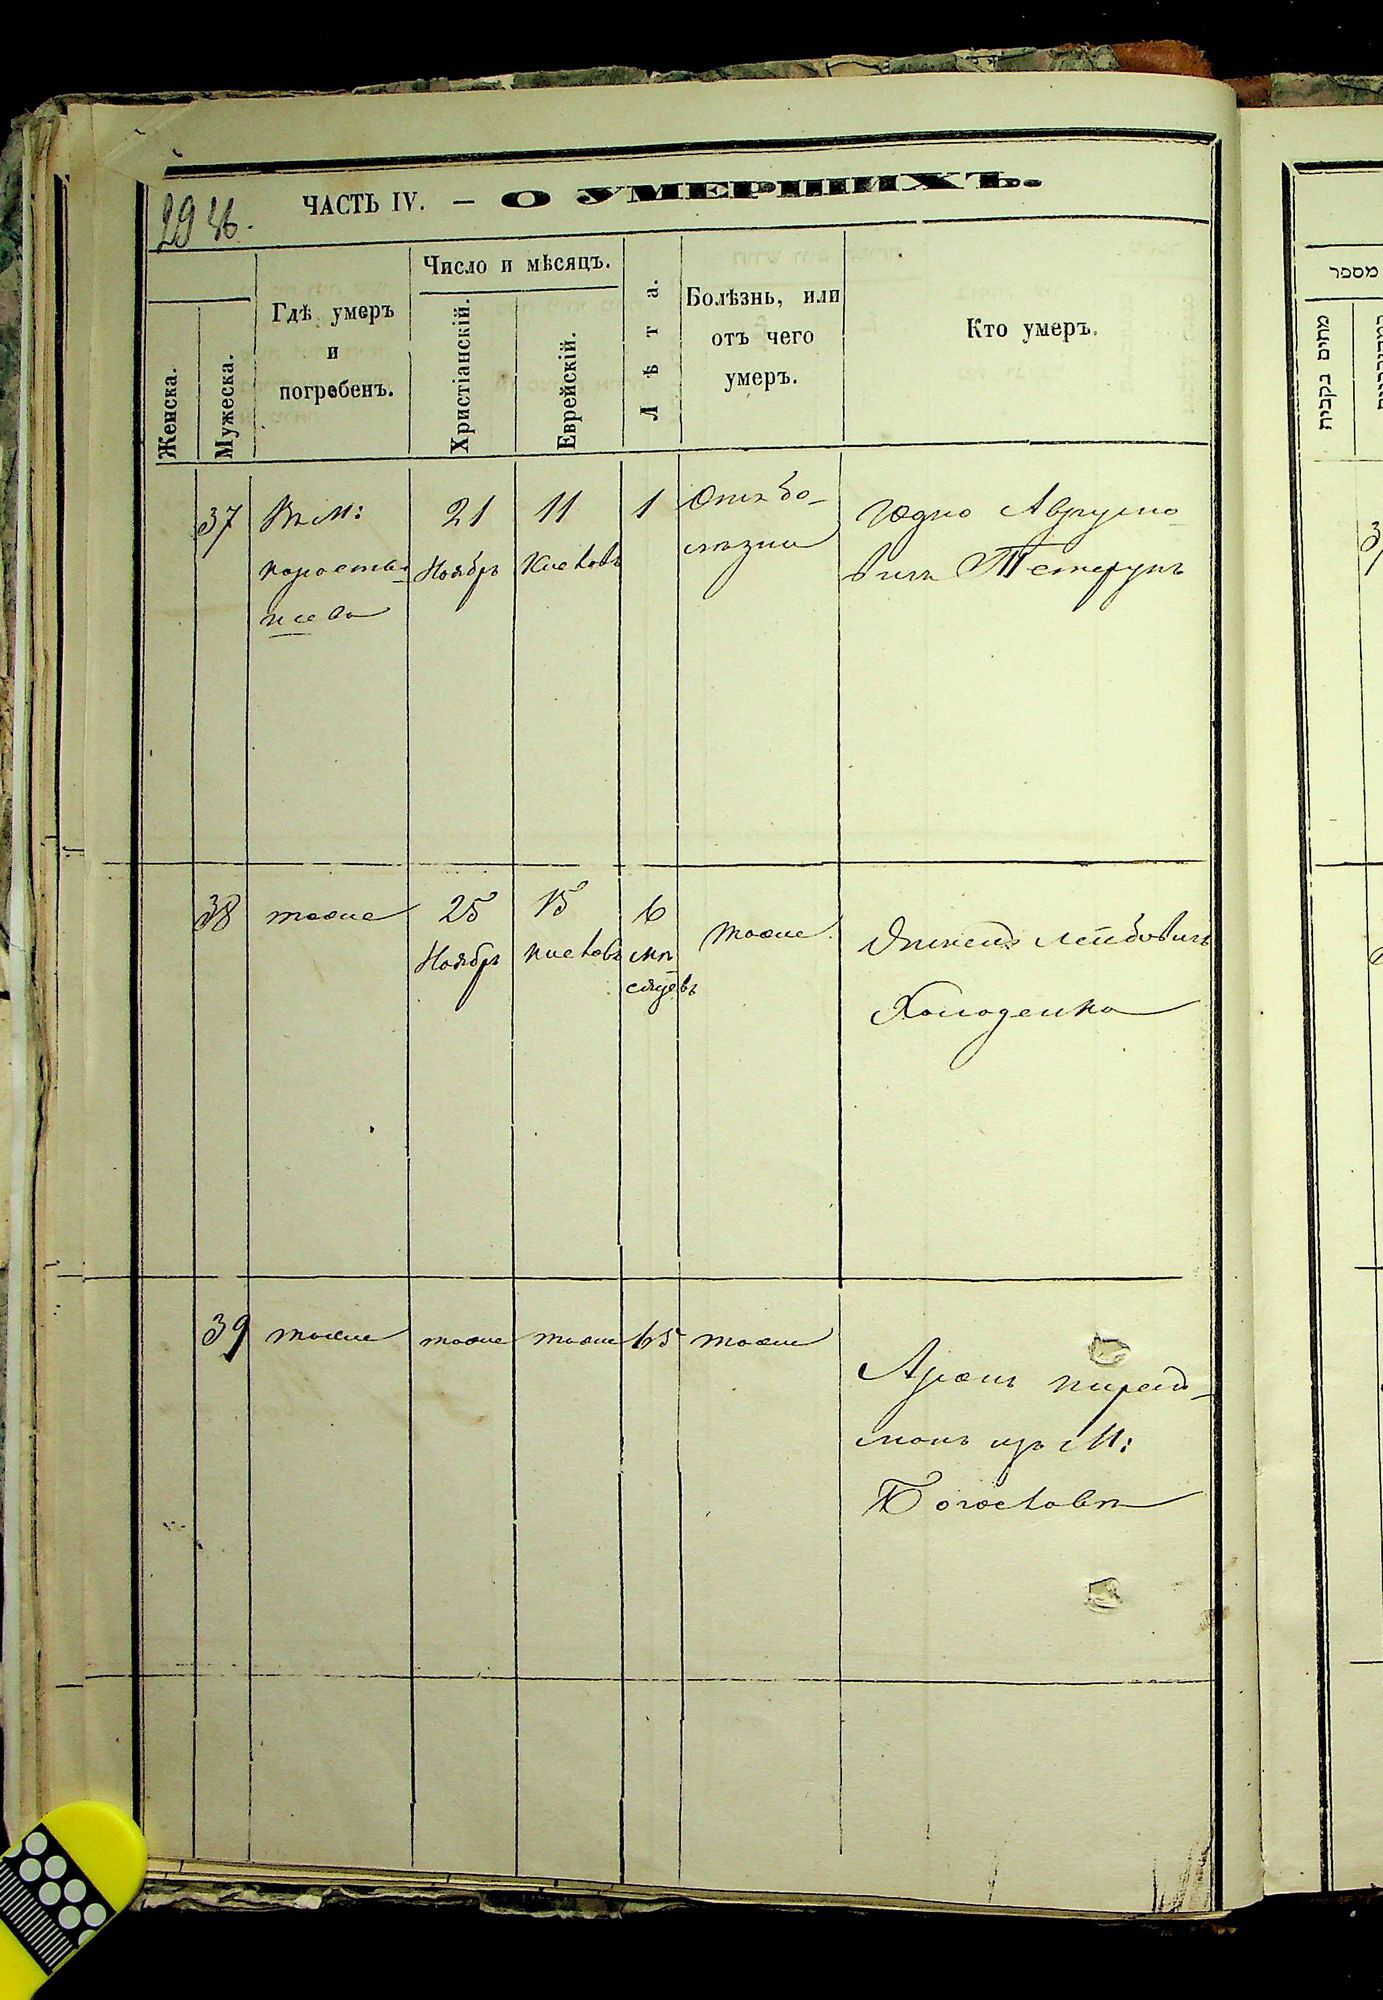 29 об.
ЧАСТЬ IV. — О УМЕРШИХЪ.
Женска.
Мужеска.
Гдѣ умеръ
и
погребенъ.
Число и мѣсяцъ.
Христіанскій.
Еврейскій.
Лѣта.
Болѣзнь, или
отъ чего
умеръ.
Кто умеръ.
37
Въ М:
коросты-
шевѣ
21
Ноябр
11
Кислевъ
1
Отъ бо-
лѣзни
Юдко Аврумо-
вичъ Тетерукъ
38
тоже
25
Ноябр
15
кислевъ
6
мѣ-
сяцевъ
тоже
Лейбовичъ
Холоденко
39
тоже
тоже
тоже
65
тоже
Аронъ
изъ М:
מספר
מתים בקבית